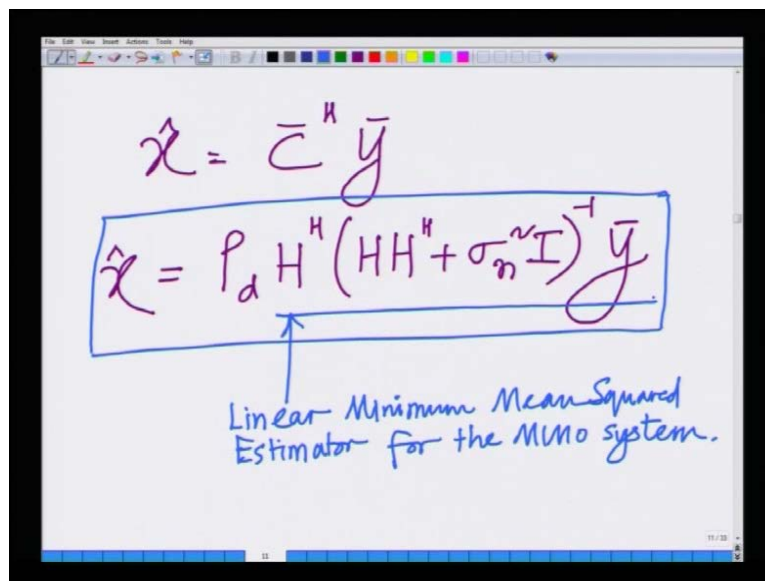 File Edit View Insert Actions Tools Help
x̂ = c̄ᴴ ȳ
x̂ = P_d Hᴴ (HHᴴ + σₙ² I)⁻¹ ȳ
Linear Minimum Mean Squared
Estimator for the MIMO system.
11 / 33
11